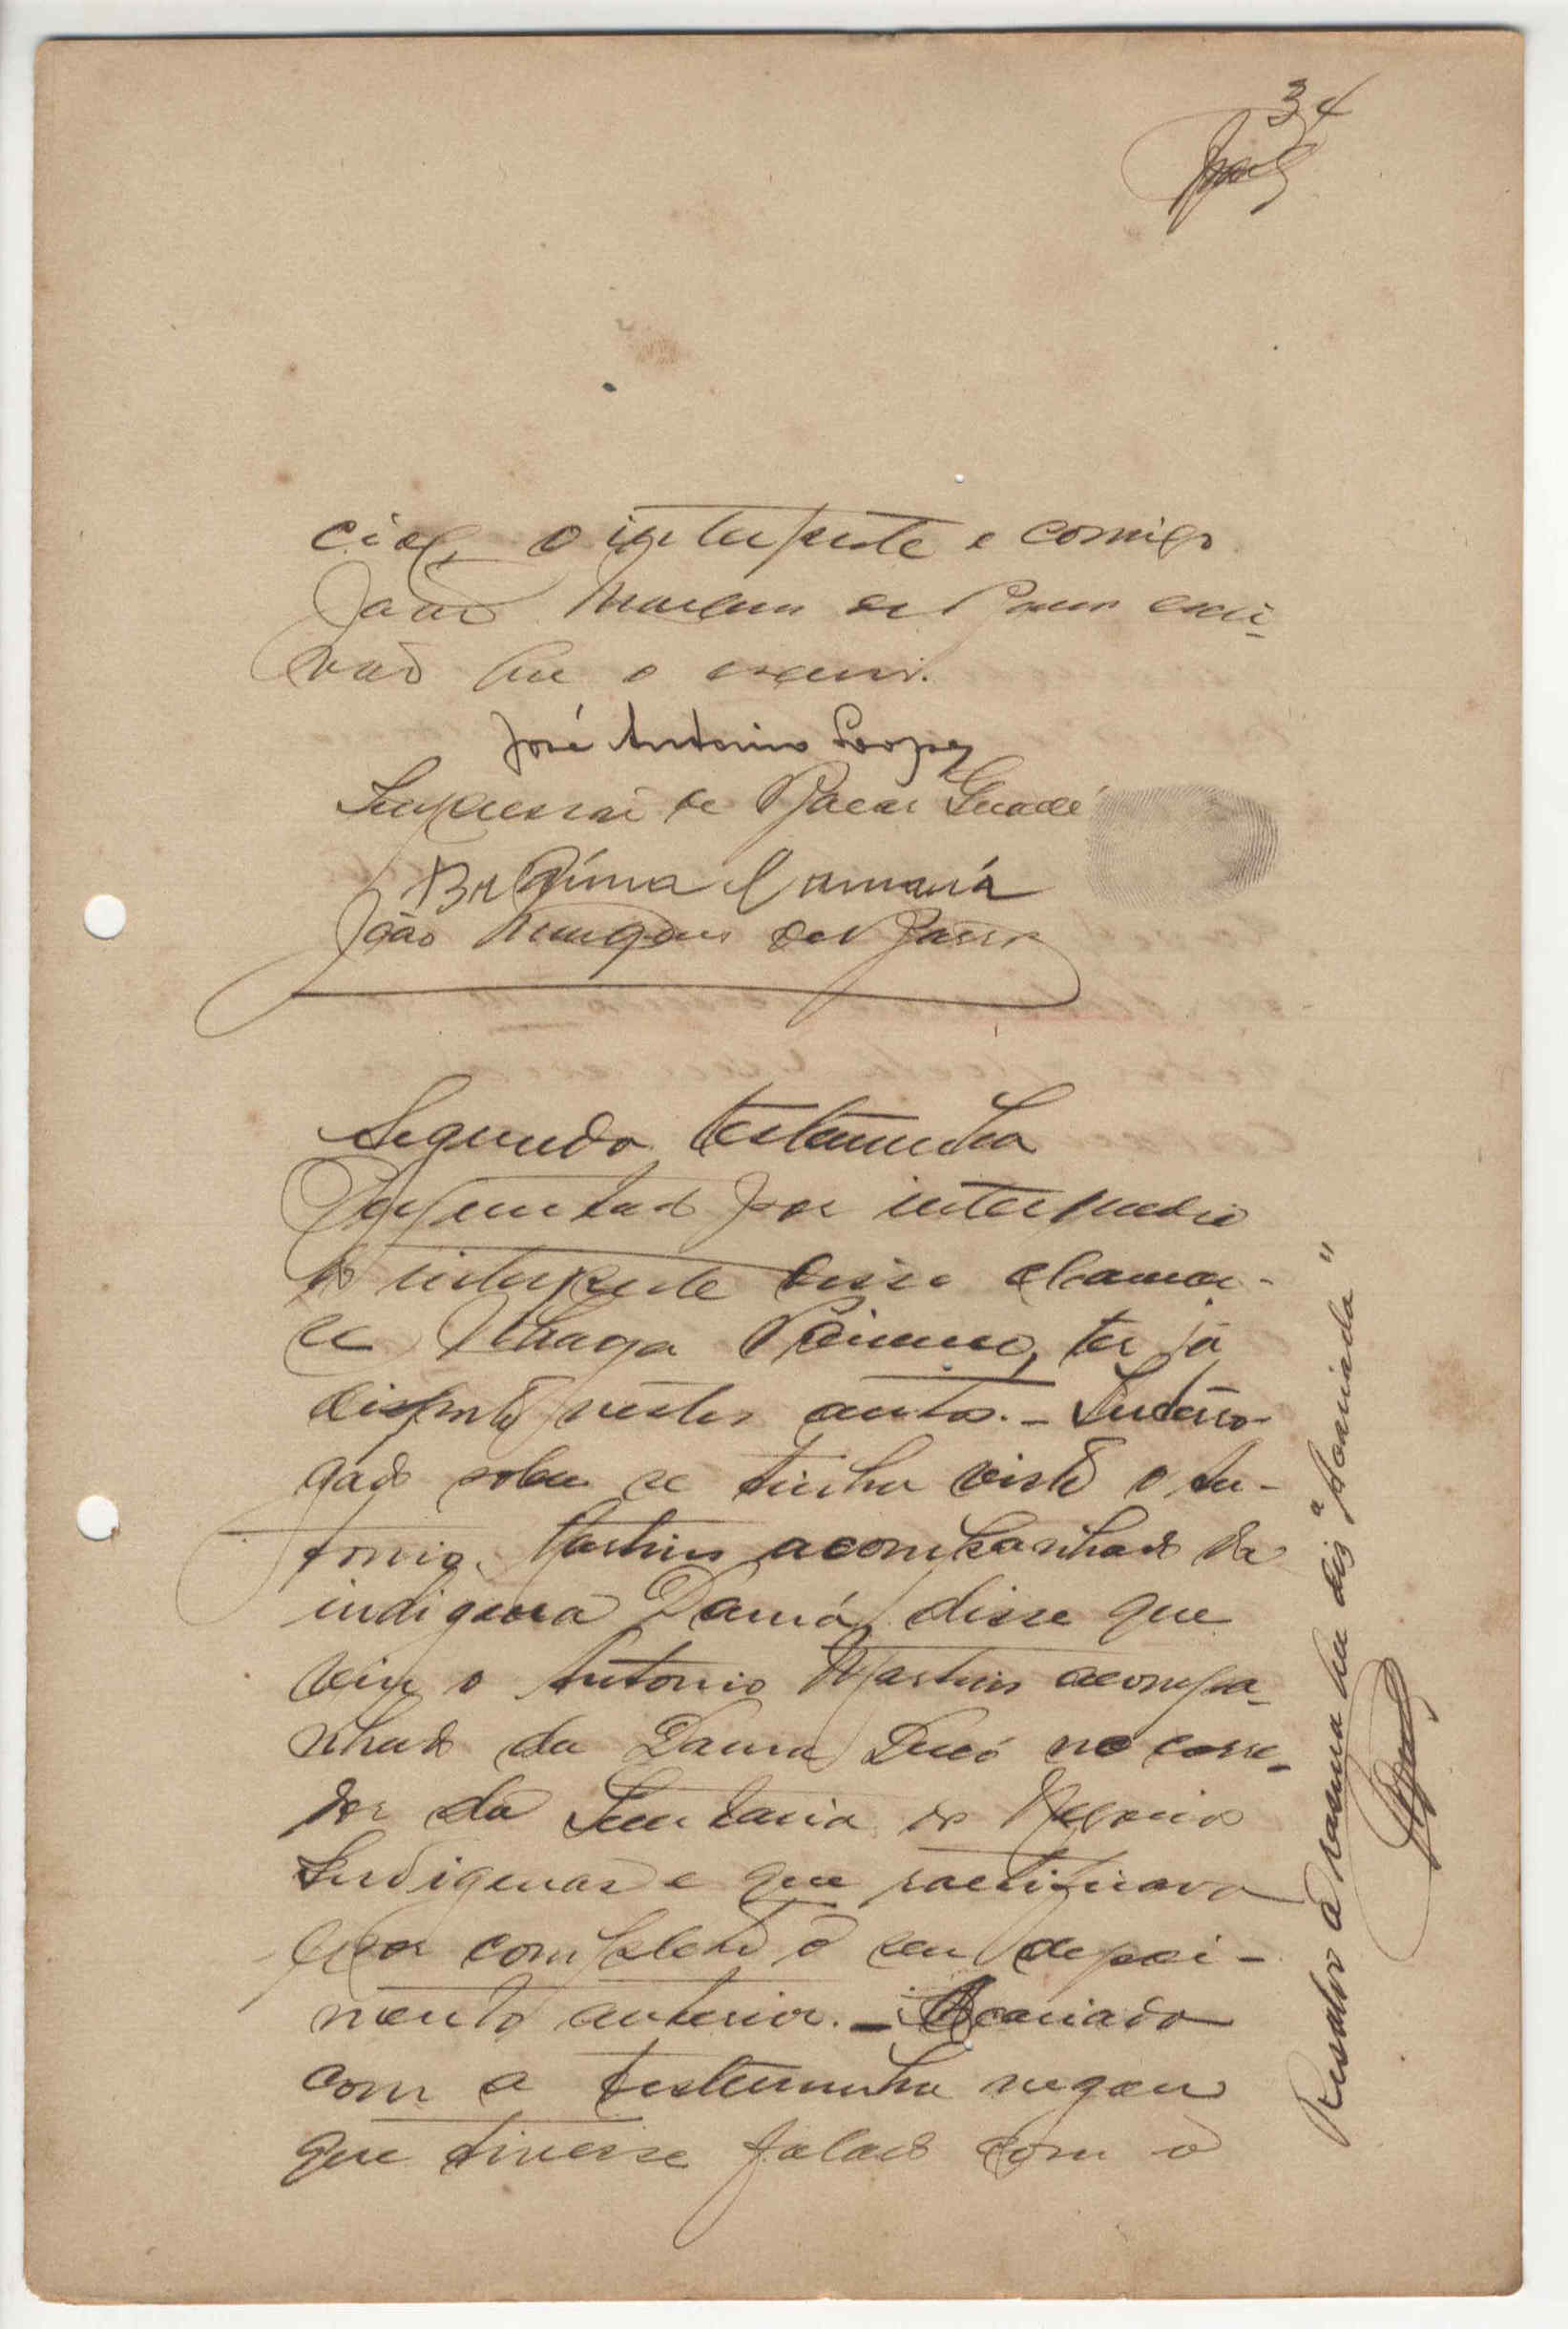 34
cial, o interprete e comigo
João Marques de Barros escri-
vão que o escrevi.
José Antonio Lopes
Impressão de Bacar Guadé
Braima Camará
João Marques de Barros
Segunda testemunha
Perguntado por intermedio
do interprete disse chamar-
se ter já
disposto nestes autos. - Interro-
gado sobre se tinha visto o An-
tonio Martins acompanhado da
indigena Damá, disse que
viu o Antonio Martins acompa-
nhado da Dama no corre-
dor da Secretaria dos Negocios
Indigenas e que ractificava
por completo o seu depoi-
mento anterior. - Acariado
com a testemunha negou
que tivesse falado com o
Resalvo a rasura que diz "Acariada"